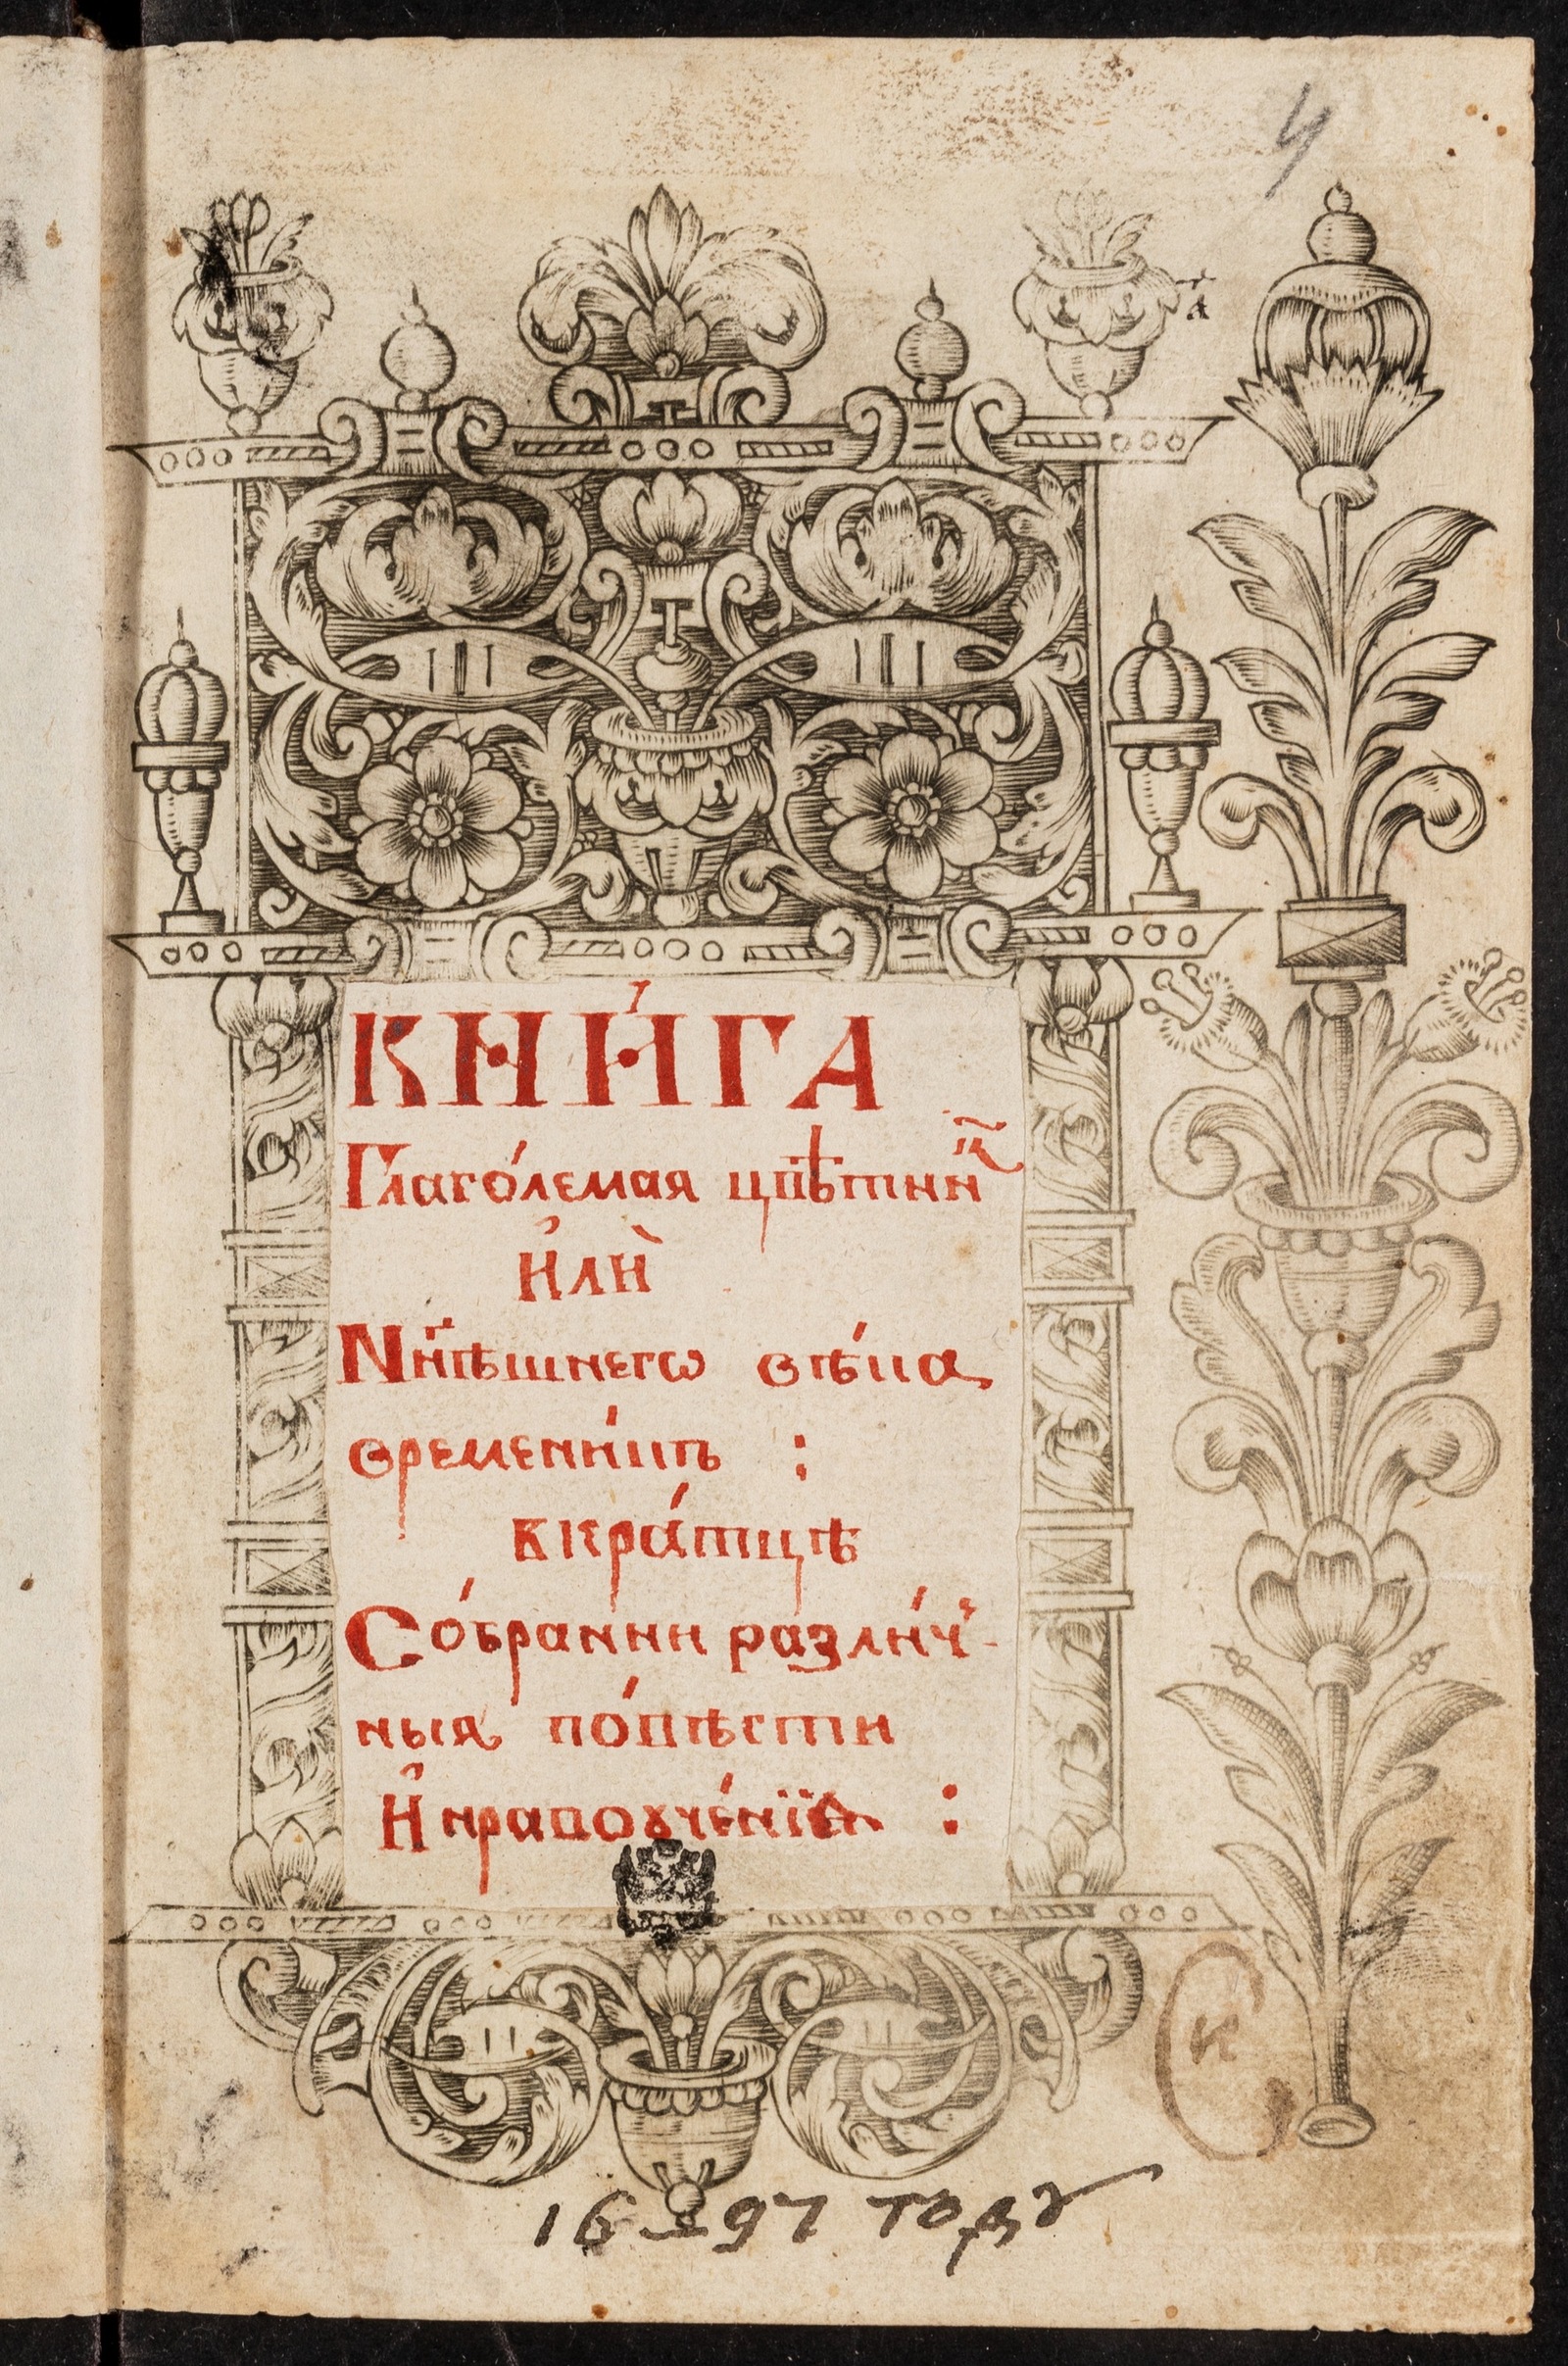 4
а҃
КНИ́ГА
Глаго́лемая цвѣтни́к
и҆лѝ
Нн҃ѣшнегѡ вѣ́ка
временни́къ :
вкра́тцѣ
Со́бранни разли́ч-
ныя по́вѣсти
И҆ нраваꙋче́нїя :
16 97 году